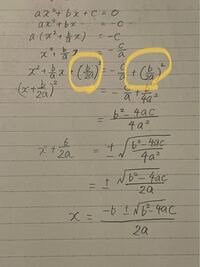 ax² + bx + c = 0
ax² + bx = -c
a(x² + b/a x) = -c
x² + b/a x = -c/a
x² + b/a x + (b/a)² = -c/a + (b/a)²
(x + b/2a)² = -c/a + b²/4a²
= b² - 4ac/4a²
x + b/2a = ± √b² - 4ac/4a²
= ± √b² - 4ac/2a
x = -b ± √b² - 4ac/2a